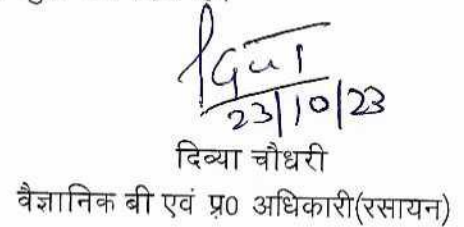 23/10/23
दिव्या चौधरी
वैज्ञानिक बी एवं प्र0 अधिकारी(रसायन)